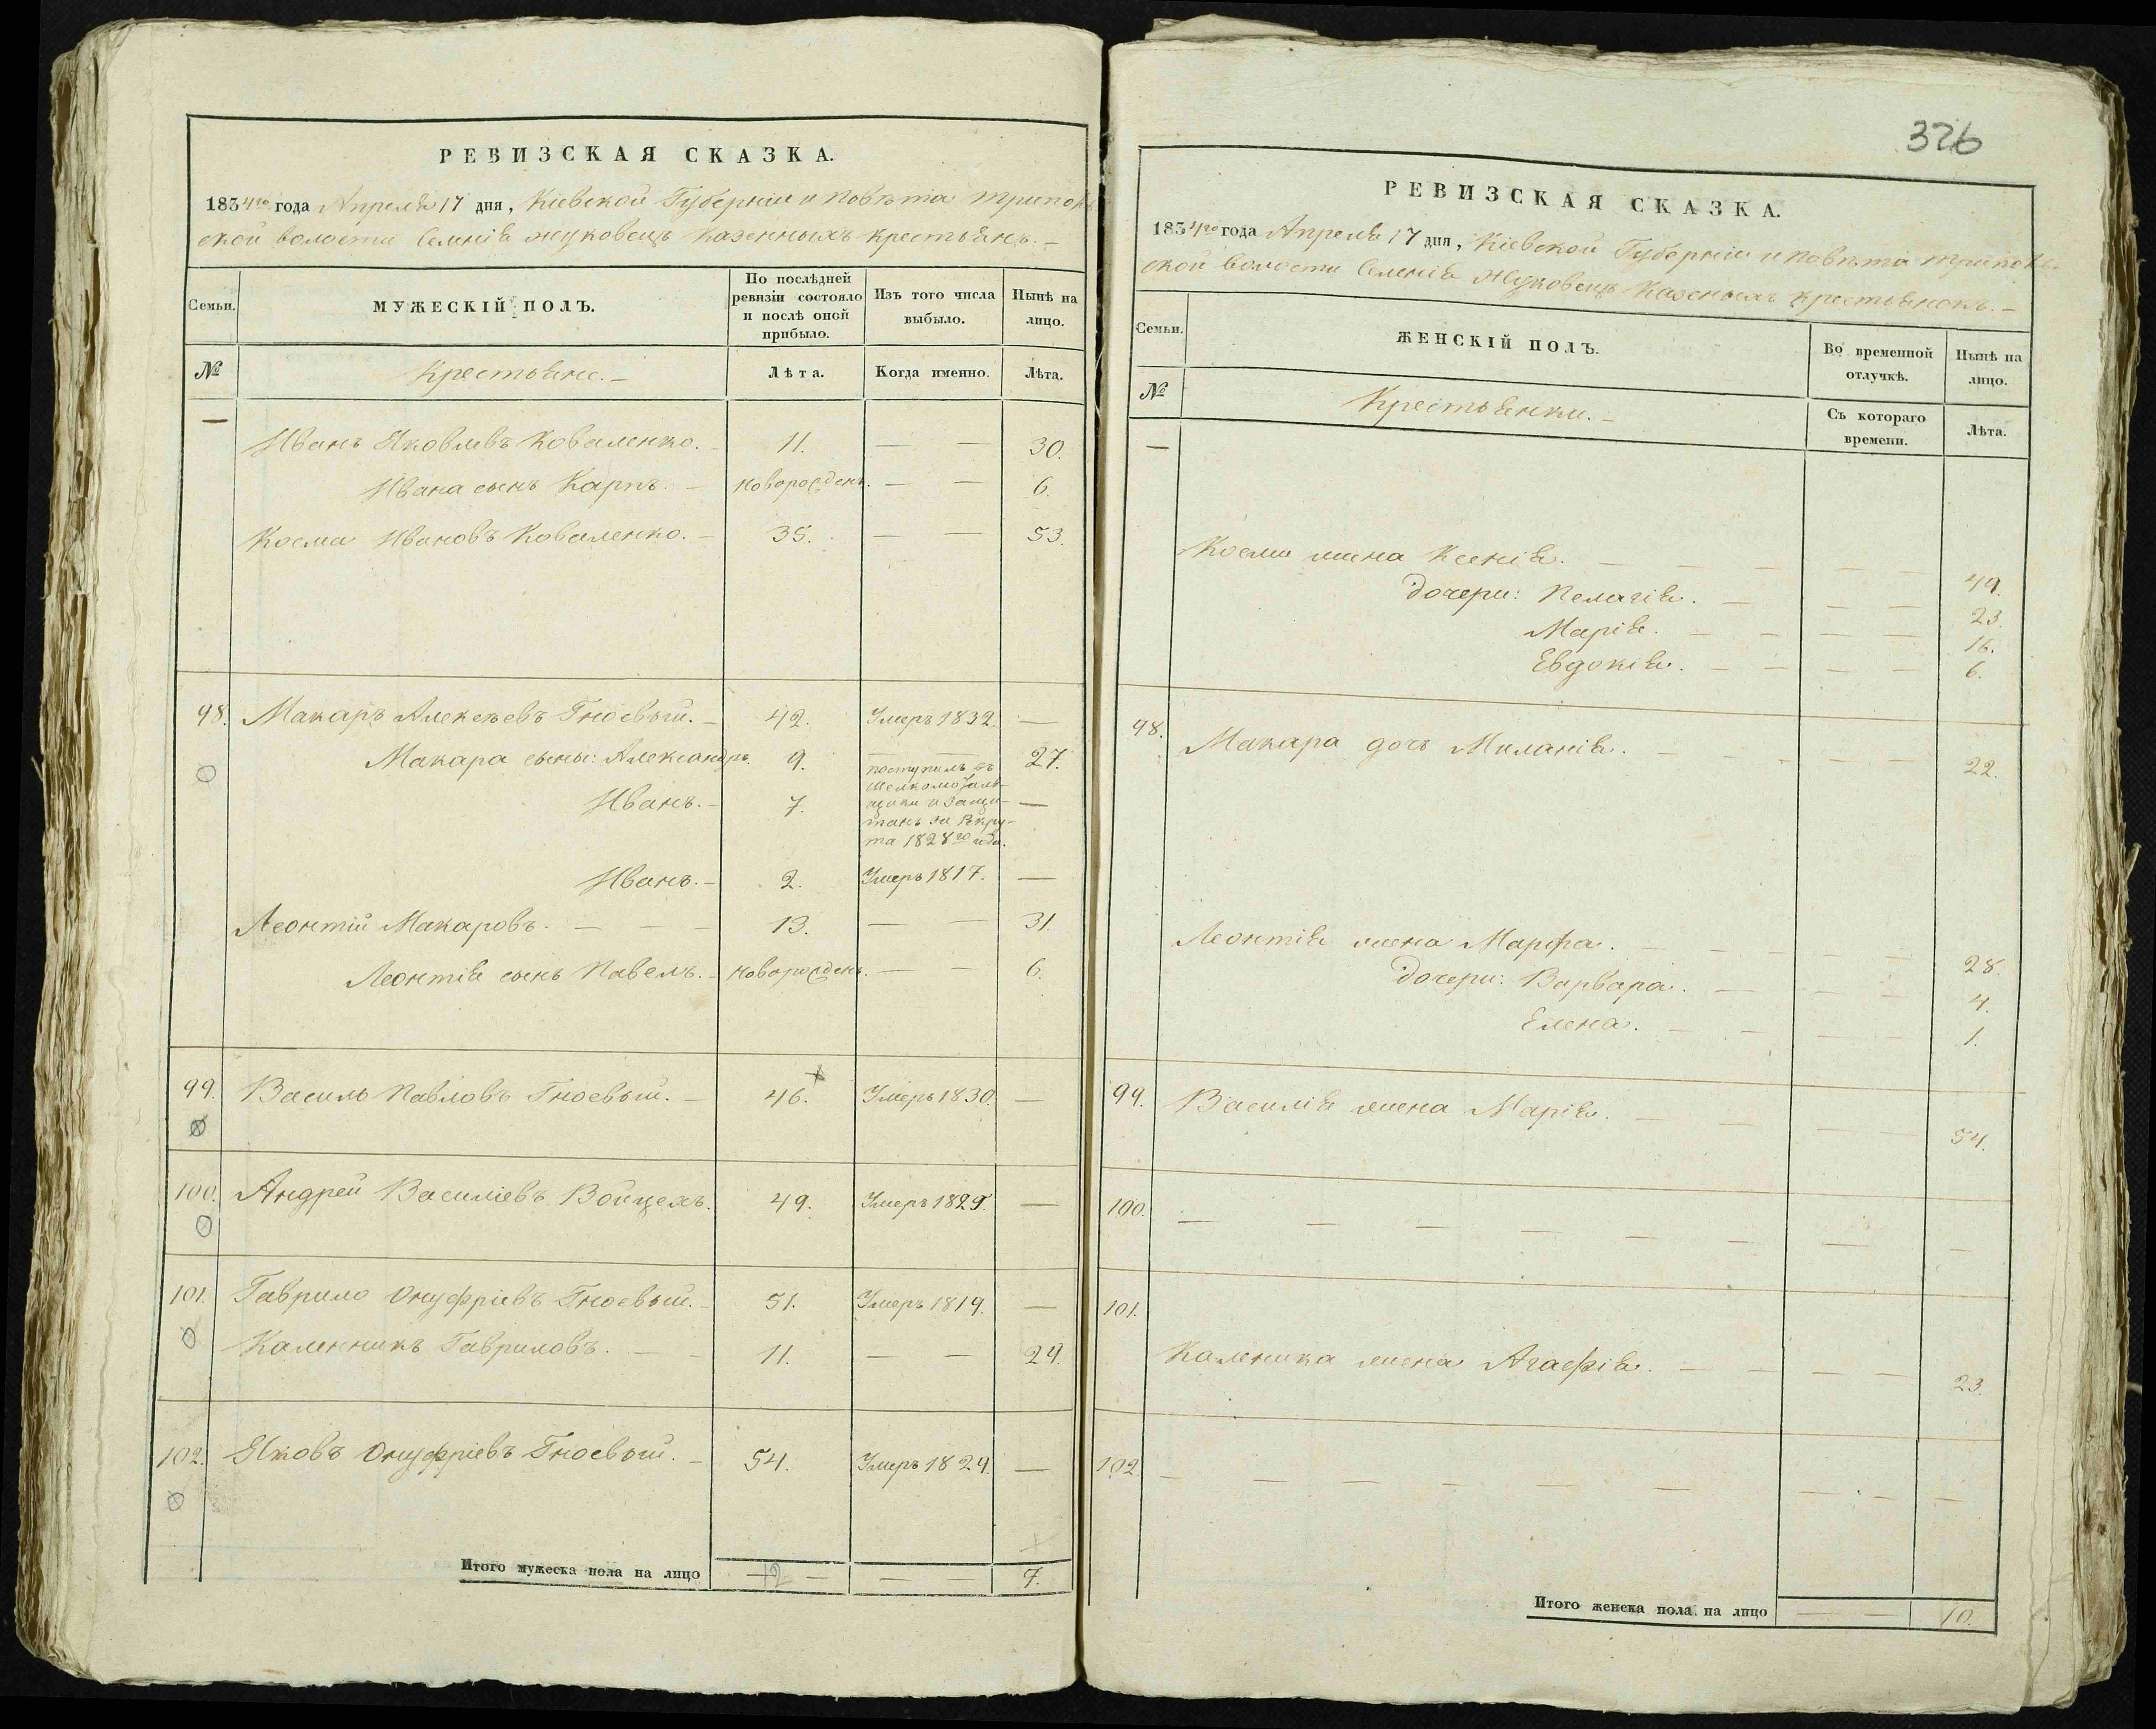 РЕВИЗСКАЯ СКАЗКА.
1834го года Апреля 17 дня, Кіевской Губерніи и Повѣта Триполь
ской волости Селенія Жуковецъ Казенныхъ крестьянъ. —
Семьи.
МУЖЕСКІЙ ПОЛЪ.
По послѣдней ревизіи состояло и послѣ оной прибыло.
Изъ того числа выбыло.
Нынѣ на лицо.
№
Крестьяне. —
Лѣта.
Когда именно.
Лѣта.
—
Иванъ Яковлевъ Коваленко. — 11. — — 30.
Ивана сынъ Карпъ. — новорожденъ. — — 6.
Косма Ивановъ Коваленко. — 35. — — 53.
98. Макаръ Алексѣевъ Гноевый. — 42. Умеръ 1832. —
Макара сыны: Александръ. 9. — — 27.
Иванъ. — 7. поступилъ въ
шелкомоталь-
щики и защи-
танъ за Рекру-
та 1828го года. —
Иванъ. — 2. Умеръ 1817. —
Леонтій Макаровъ. — — — 13. — — 31.
Леонтія сынъ Павелъ. — новорожденъ. — — 6.
99. Василь Павловъ Гноевый. — 46. Умеръ 1830. —
100. Андрей Василіевъ Войцехъ. 49. Умеръ 1829. —
101. Гаврило Онуфріевъ Гноевый. — 51. Умеръ 1819. —
Каленникъ Гавриловъ. — — 11. — — 29.
102. Яковъ Онуфріевъ Гноевый. — 54. Умеръ 1824. —
Итого мужеска пола на лицо — 12 — — 7.
326
РЕВИЗСКАЯ СКАЗКА.
1834го года Апреля 17 дня, Кіевской Губерніи и Повѣта Триполь-
ской волости Селенія Жуковецъ Казеныхъ крестьянокъ. —
Семьи.
ЖЕНСКІЙ ПОЛЪ.
Во временной отлучкѣ.
Нынѣ на лицо.
№
Крестьянки. —
Съ котораго времени.
Лѣта.
—
Космы жена Ксенія. — — — — — 49.
дочери: Пелагія. — — — 23.
Марія. — — — — 16.
Евдокія. — — — — 6.
98. Макара дочь Миланія. — — — — — 22.
Леонтія жена Марфа. — — — — — 28.
дочери: Варвара. — — — 4.
Елена. — — — — 1.
99. Василія жена Марія. — — — — 54.
100. — — — — — — — —
101.
Каленика жена Агафія. — — — — 23.
102 — — — — — — — —
Итого женска пола на лицо — — 10.